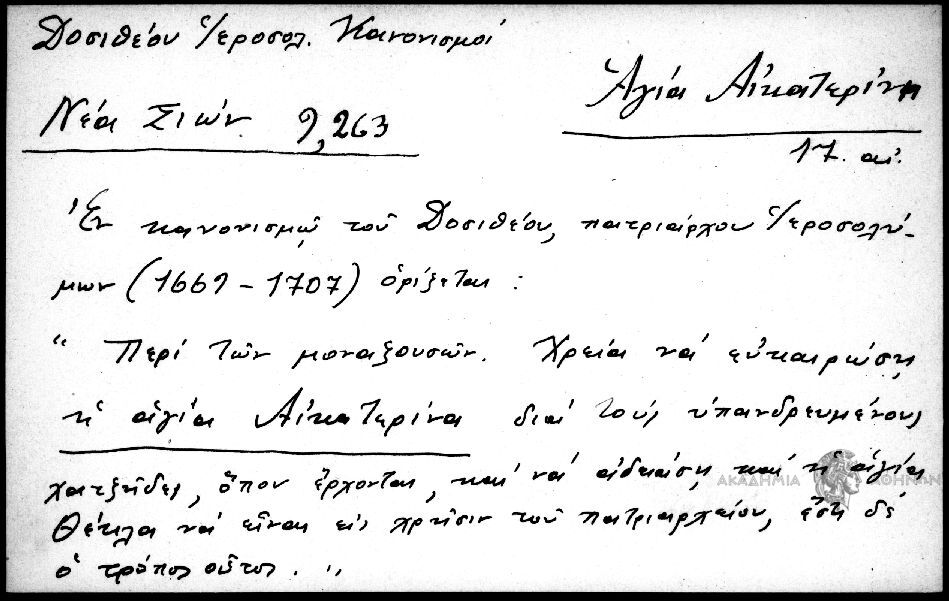 Δοσιθέου Ἱεροσολ. Κανονισμοί
Ἁγία Αἰκατερίνη
Νέα Σιών 2, 263
17. αἰ.
Ἐν κανονισμῷ τοῦ Δοσιθέου, πατριάρχου Ἱεροσολύ-
μων (1669 - 1707) ὁρίζεται :
" Περί τῶν μοναζουσῶν. Χρεία νά εὐκαιρώσῃ
ἡ ἁγία Αἰκατερίνα διά τούς ὑπανδρευμένους
χατζῆδες, ὅπου ἔρχονται, καί νά ἀδειάσῃ καί ἡ ἁγία
Θέκλα νά εἶναι εἰς χρῆσιν τοῦ πατριαρχείου, ἔστι δέ
ὁ τρόπος οὗτος . "
ΑΚΑΔΗΜΙΑ ΑΘΗΝΩΝ